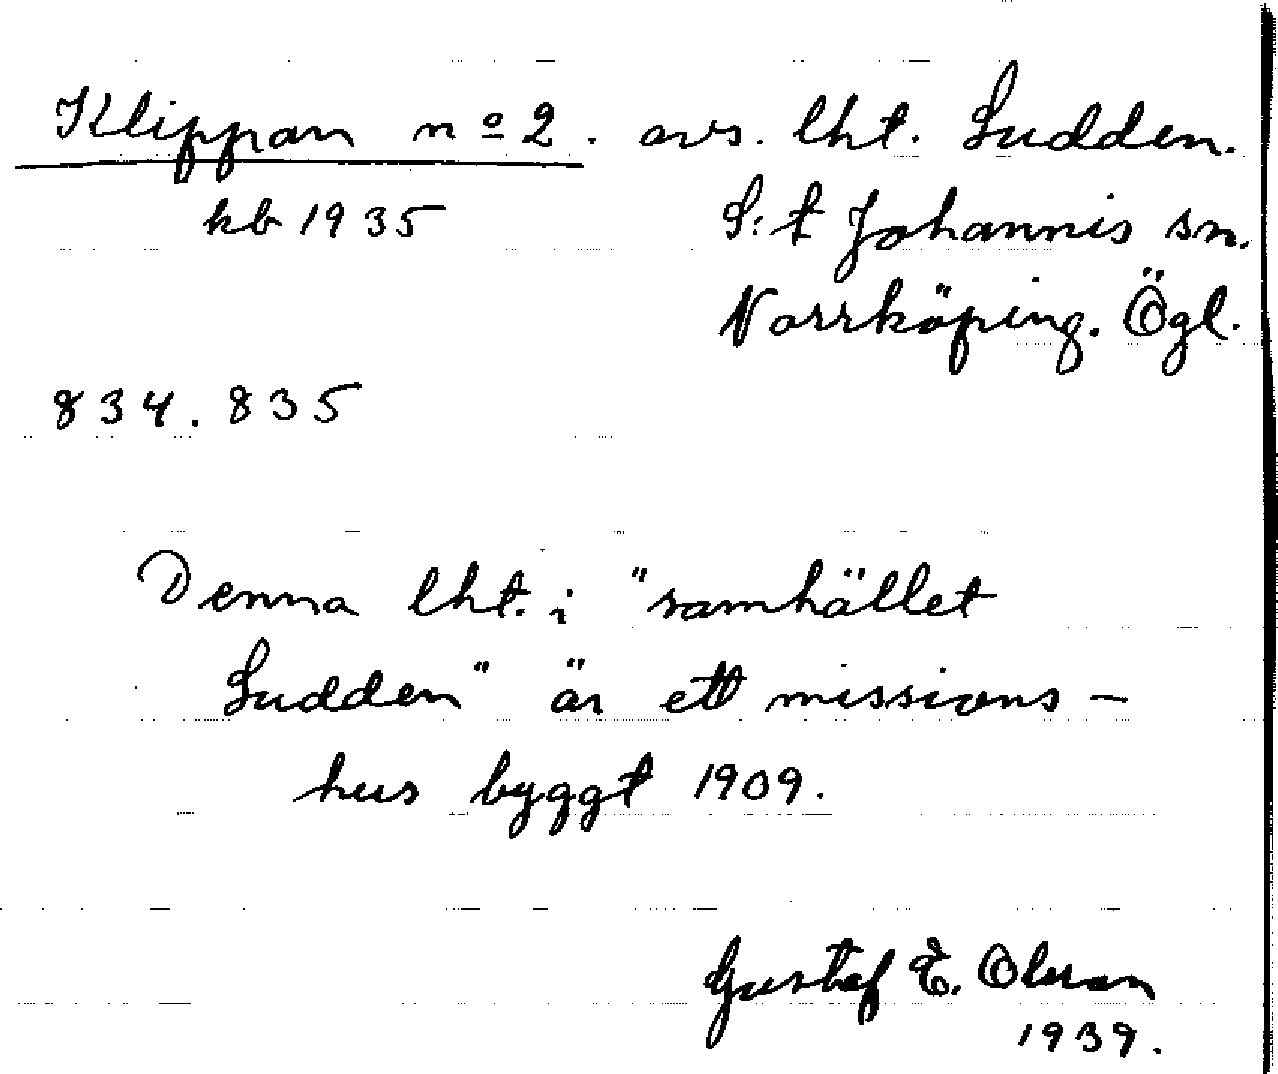 Klippan nº 2. avs. lht. Sudden.
kb 1935 S:t Johannis sn.
Norrköping. Ögl.
834. 835
Denna lht. i "samhället
Sudden" är ett missions-
hus byggt 1909.
Gustef E. Olsson
1939.